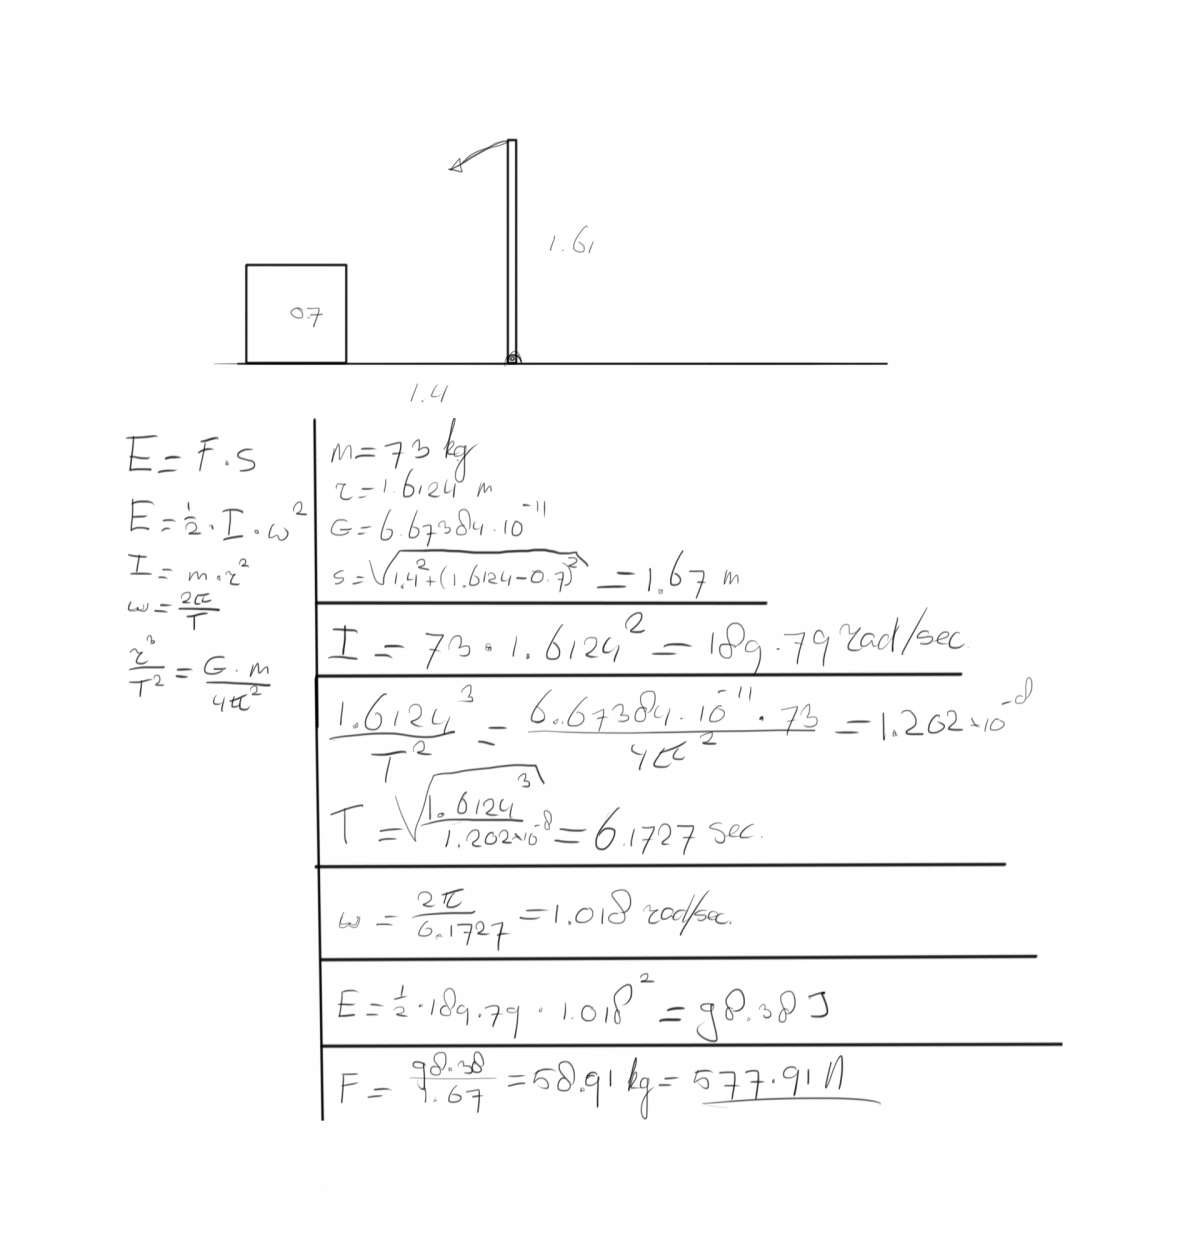 1.61
0.7
1.4
E = F · s
E = ½ · I · ω²
I = m · r²
ω = 2π/T
r³/T² = G · m/4π²
m = 73 kg
r = 1.6124 m
G = 6.67384 · 10⁻¹¹
s = √1.4² + (1.6124 - 0.7)² = 1.67 m
I = 73 · 1.6124² = 189.79 rad/sec.
1.6124³/T² = 6.67384 · 10⁻¹¹ · 73/4π² = 1.202 × 10⁻⁸
T = √1.6124³/1.202×10⁻⁸ = 6.1727 sec.
ω = 2π/6.1727 = 1.018 rad/sec.
E = ½ · 189.79 · 1.018² = 98.38 J
F = 98.38/1.67 = 58.91 kg = 577.91 N